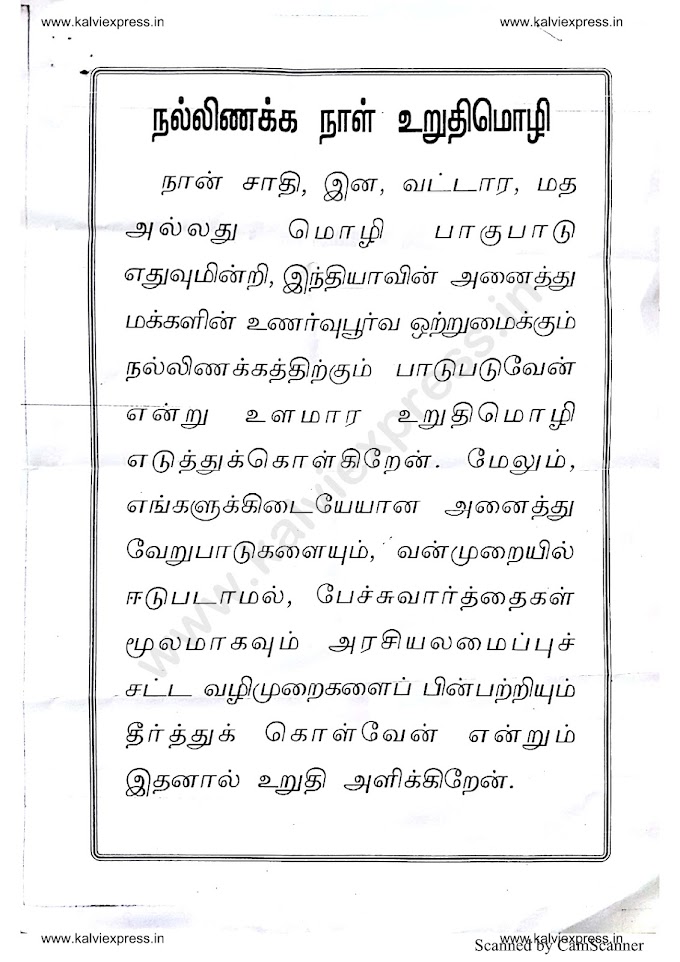 www.kalviexpress.in www.kalviexpress.in
நல்லிணக்க நாள் உறுதிமொழி
நான் சாதி, இன, வட்டார, மத
அல்லது மொழி பாகுபாடு
எதுவுமின்றி, இந்தியாவின் அனைத்து
மக்களின் உணர்வுபூர்வ ஒற்றுமைக்கும்
நல்லிணக்கத்திற்கும் பாடுபடுவேன்
என்று உளமார உறுதிமொழி
எடுத்துக்கொள்கிறேன். மேலும்,
எங்களுக்கிடையேயான அனைத்து
வேறுபாடுகளையும், வன்முறையில்
ஈடுபடாமல், பேச்சுவார்த்தைகள்
மூலமாகவும் அரசியலமைப்புச்
சட்ட வழிமுறைகளைப் பின்பற்றியும்
தீர்த்துக் கொள்வேன் என்றும்
இதனால் உறுதி அளிக்கிறேன்.
www.kalviexpress.in
www.kalviexpress.in www.kalviexpress.in
Scanned by CamScanner